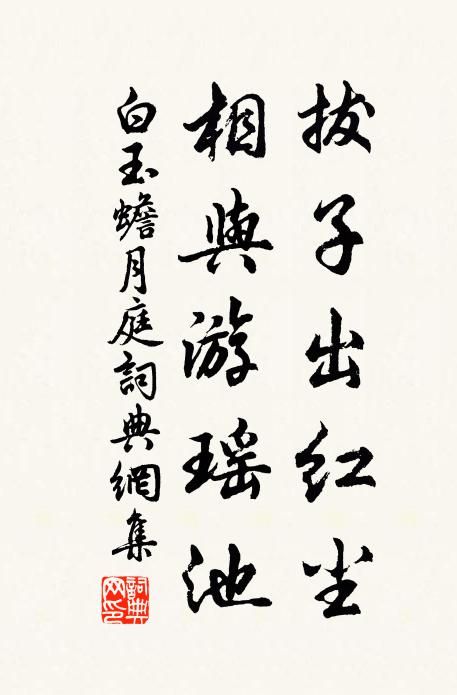 拔子出红尘
相與游瑶池
白玉蟾月庭詞典網集
詞典网印